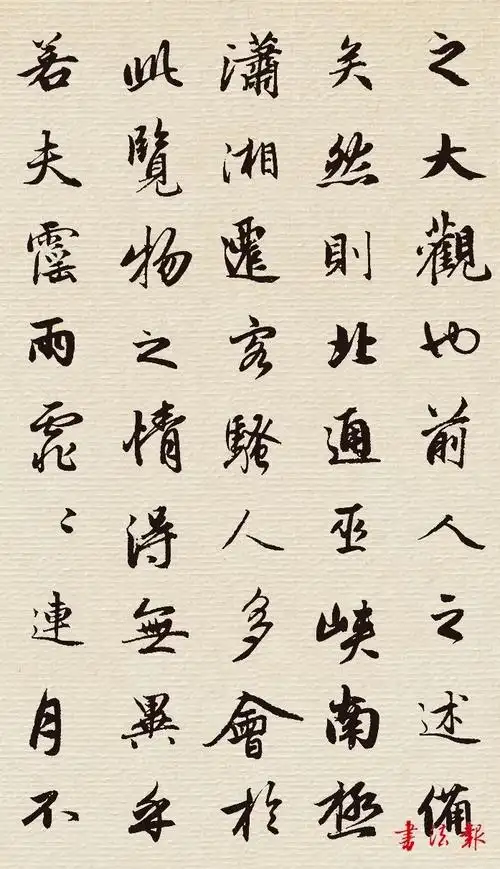 之大觀也前人之述備
矣然則北通巫峽南極
瀟湘遷客騷人多會於
此覽物之情得無異乎
若夫霪雨霏〻連月不
書法報